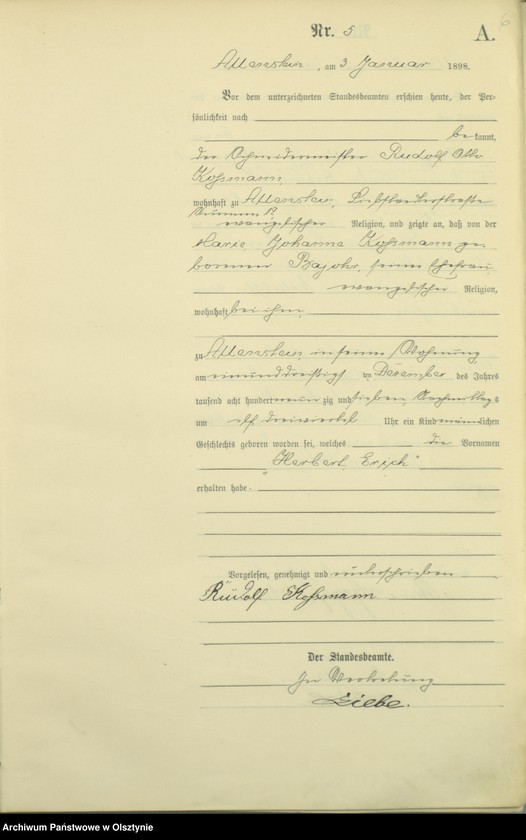 6
Nr. 5
A.
Allenstein, am 3 Januar 1898.
Vor dem unterzeichneten Standesbeamten erschien heute, der Per-
sönlichkeit nach
be kannt,
der Schneidermeister Rudolf Otto
Koßmann
wohnhaft zu Allenstein, Liebstädterstraße
Nummer
evangelischer Religion, und zeigte an, daß von der
Marie Johanna Koßmann ge-
borenen Bajohr, seiner Ehefrau
evangelischer Religion,
wohnhaft bei ihm
zu Allenstein in seiner Wohnung
am einunddreißigsten Dezember des Jahres
tausend acht hundert neunzig und sieben Nachmittags
um elf dreiviertel Uhr ein Kind männlichen
Geschlechts geboren worden sei, welches die Vornamen
"Herbert Erich"
erhalten habe.
Vorgelesen, genehmigt und unterschrieben
Rudolf Koßmann
Der Standesbeamte.
In Vertretung
Liebe.
Archiwum Państwowe w Olsztynie